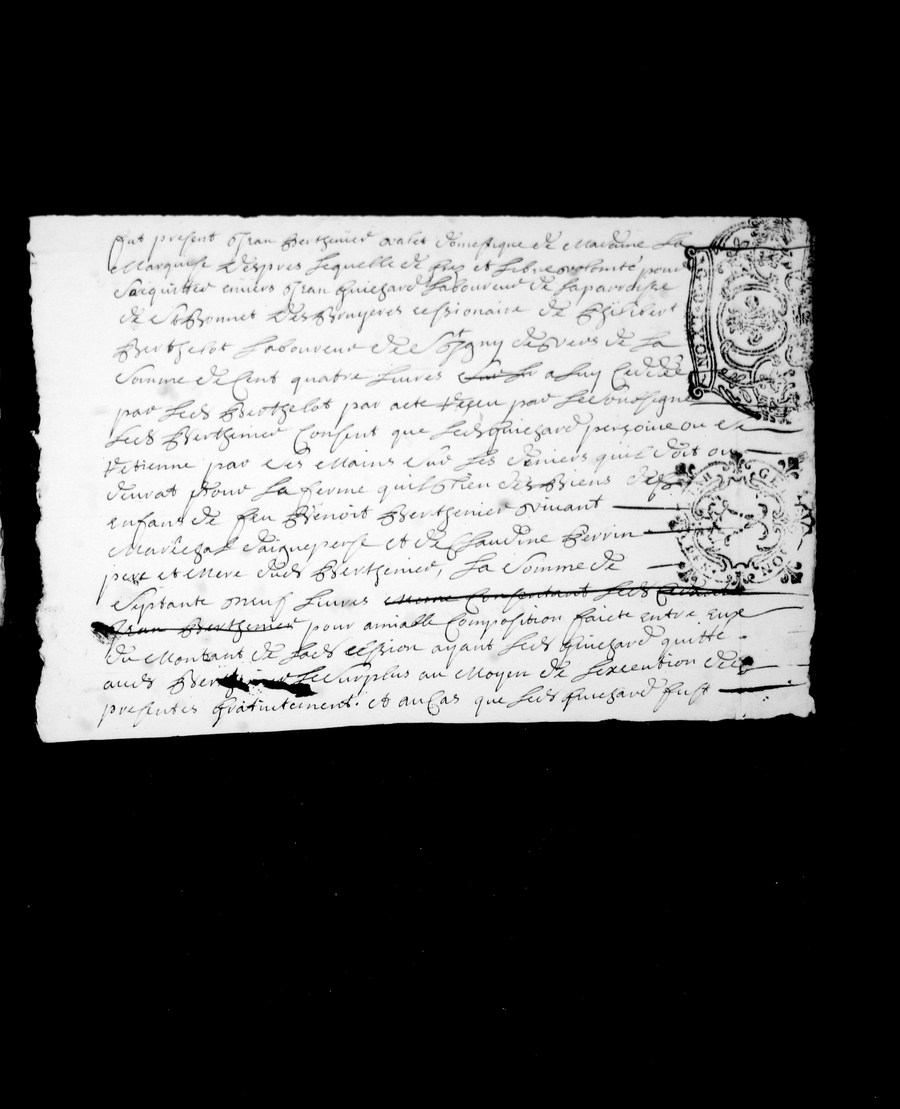 fut present Jean Berthenier valet domestique de Madame La
Marquise Despres Lequelle de Grez et Libre volonté pour
Saiquitter envers Jean Guiezard Laboureur de La parroisse
de St Bonnet Des Bruyeres cessionaire de Philibert
Berthelot Laboureur de St Igny de Vers de La
Somme de Cent quatre Livres a Luy Ceddée
par Led Berthelot par acte Receu par Le soussigne
Led Berthenier Consent que Led Guiezard persoive ou
Retienne par Ses Mains Sur Les deniers quil doit ou
devrat pour La ferme quil tien des Biens des
enfans de feu Benoit Berthenier vivant
Maréchal daigueperse et de Claudine Perrin
pere et Mere dud Berthenier, La Somme de
Septante neuf Livres Consentant Led
Jean Berthenier pour amiable Composition faicte entre eux
du Montant de Lad cession ayant Led Guiezard quitté
aud Le surplus au Moyen de Lexecution des
presentes gratuitement. et au Cas que Led Guiezard fust